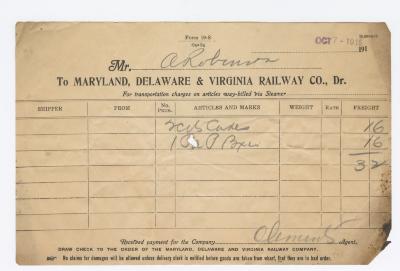 Form 19-S
OCT 7 - 191
191
Mr. A Robinson
To MARYLAND, DELAWARE & VIRGINIA RAILWAY CO., Dr.
For transportation charges on articles way-billed via Steamer
SHIPPER FROM No. PKGS. ARTICLES AND MARKS WEIGHT RATE FREIGHT
2 Cases 16
1 Box 16
32
Clements
Received payment for the Company Agent.
DRAW CHECK TO THE ORDER OF THE MARYLAND, DELAWARE AND VIRGINIA RAILWAY COMPANY.
No claims for damages will be allowed unless delivery clerk is notified before goods are taken from wharf, that they are in bad order.